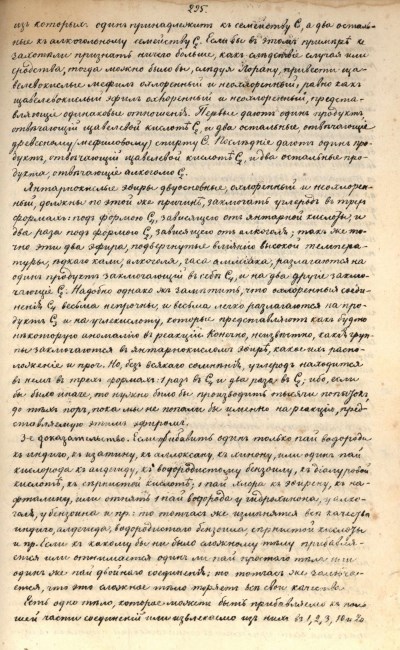 295.
изъ которыхъ одинъ принадлежитъ къ семейству C, а два осталь-
ные къ алкогольному семейству C. Если бы въ этомъ примѣрѣ и
захотѣли признать ничего больше, какъ слѣдствіе случая или
сродства, тогда можно было бы, слѣдуя Лорану, привести ща-
велевокислые мефилъ охлоренный и неохлоренный, равно какъ
щавелевокислый эфилъ охлоренный и неохлоренный, предста-
вляющіе одинаковыя отношенія. Первые даютъ одинъ продуктъ
отвѣчающій щавелевой кислотѣ C, и два остальные, отвѣчающіе
древесному (мефиловому) спирту C. Послѣдніе даютъ одинъ про-
дуктъ, отвѣчающій щавелевой кислотѣ C, и два остальные про-
дукта, отвѣчающіе алкоголю C.
Янтарнокислые эфиры двуосновные, охлоренный и неохлорен-
ный, должны по этой же причинѣ, заключать углеродъ въ трехъ
формахъ: подъ формою C, зависящею отъ янтарной кислоты, и
два раза подъ формою C, зависящею отъ алкоголя; такъ же то-
чно эти два эфира, подвергнутые вліянію высокой темпера-
туры, ѣдкаго кали, алкоголя, газа амміака, разлагаются на
одинъ продуктъ заключающій въ себѣ C, и на два другіе заклю-
чающіе C. Надобно однако жъ замѣтить, что охлоренныя соеди-
ненія C весьма непрочны, и весьма легко разлагаются на про-
дуктъ C и на углекислоту, которые представляютъ какъ будто
нѣкоторую аномалію въ реакціи. Конечно, неизвѣстно, какія груп-
пы заключаются въ янтарнокисломъ эфирѣ, какое ихъ распо-
ложеніе и проч. Но, безъ всякаго сомнѣнія, углеродъ находится
въ немъ въ трехъ формахъ: 1 разъ въ C и два раза въ C; ибо, если
бы было иначе, то нужно было бы производить тысячи попытокъ,
до тѣхъ поръ, пока мы не попали бы именно на реакцію, пред-
ставляемую этимъ эфиромъ.
3-е доказательство. Если прибавить одинъ только пай водорода
къ индиго, къ изатину, къ аллоксану, къ хинону, или одинъ пай
кислорода къ алдегиду, къ водородистому бензоилу, къ
кислотѣ, къ сѣрнистой кислотѣ; 1 пай хлора къ эфирену, къ на-
фталину, или отнять 1 пай водорода у гидрохинона, у алко-
голя, у бензоина и пр: то тотчасъ же измѣнятся всѣ качества
индиго, алдегида, водородистаго бензоила, сѣрнистой кислоты
и пр. Если къ какому бы ни было сложному тѣлу прибавля-
ется или отнимается одинъ ли пай простаго тѣла или
одинъ же пай двойнаго соединенія; то тотчасъ же замѣча-
ется, что это сложное тѣло теряетъ всѣ свои качества.
Есть одно тѣло, которое можетъ быть прибавляемо къ боль-
шей части соединеній или извлекаемо изъ нихъ въ 1, 2, 3, 10 и 24